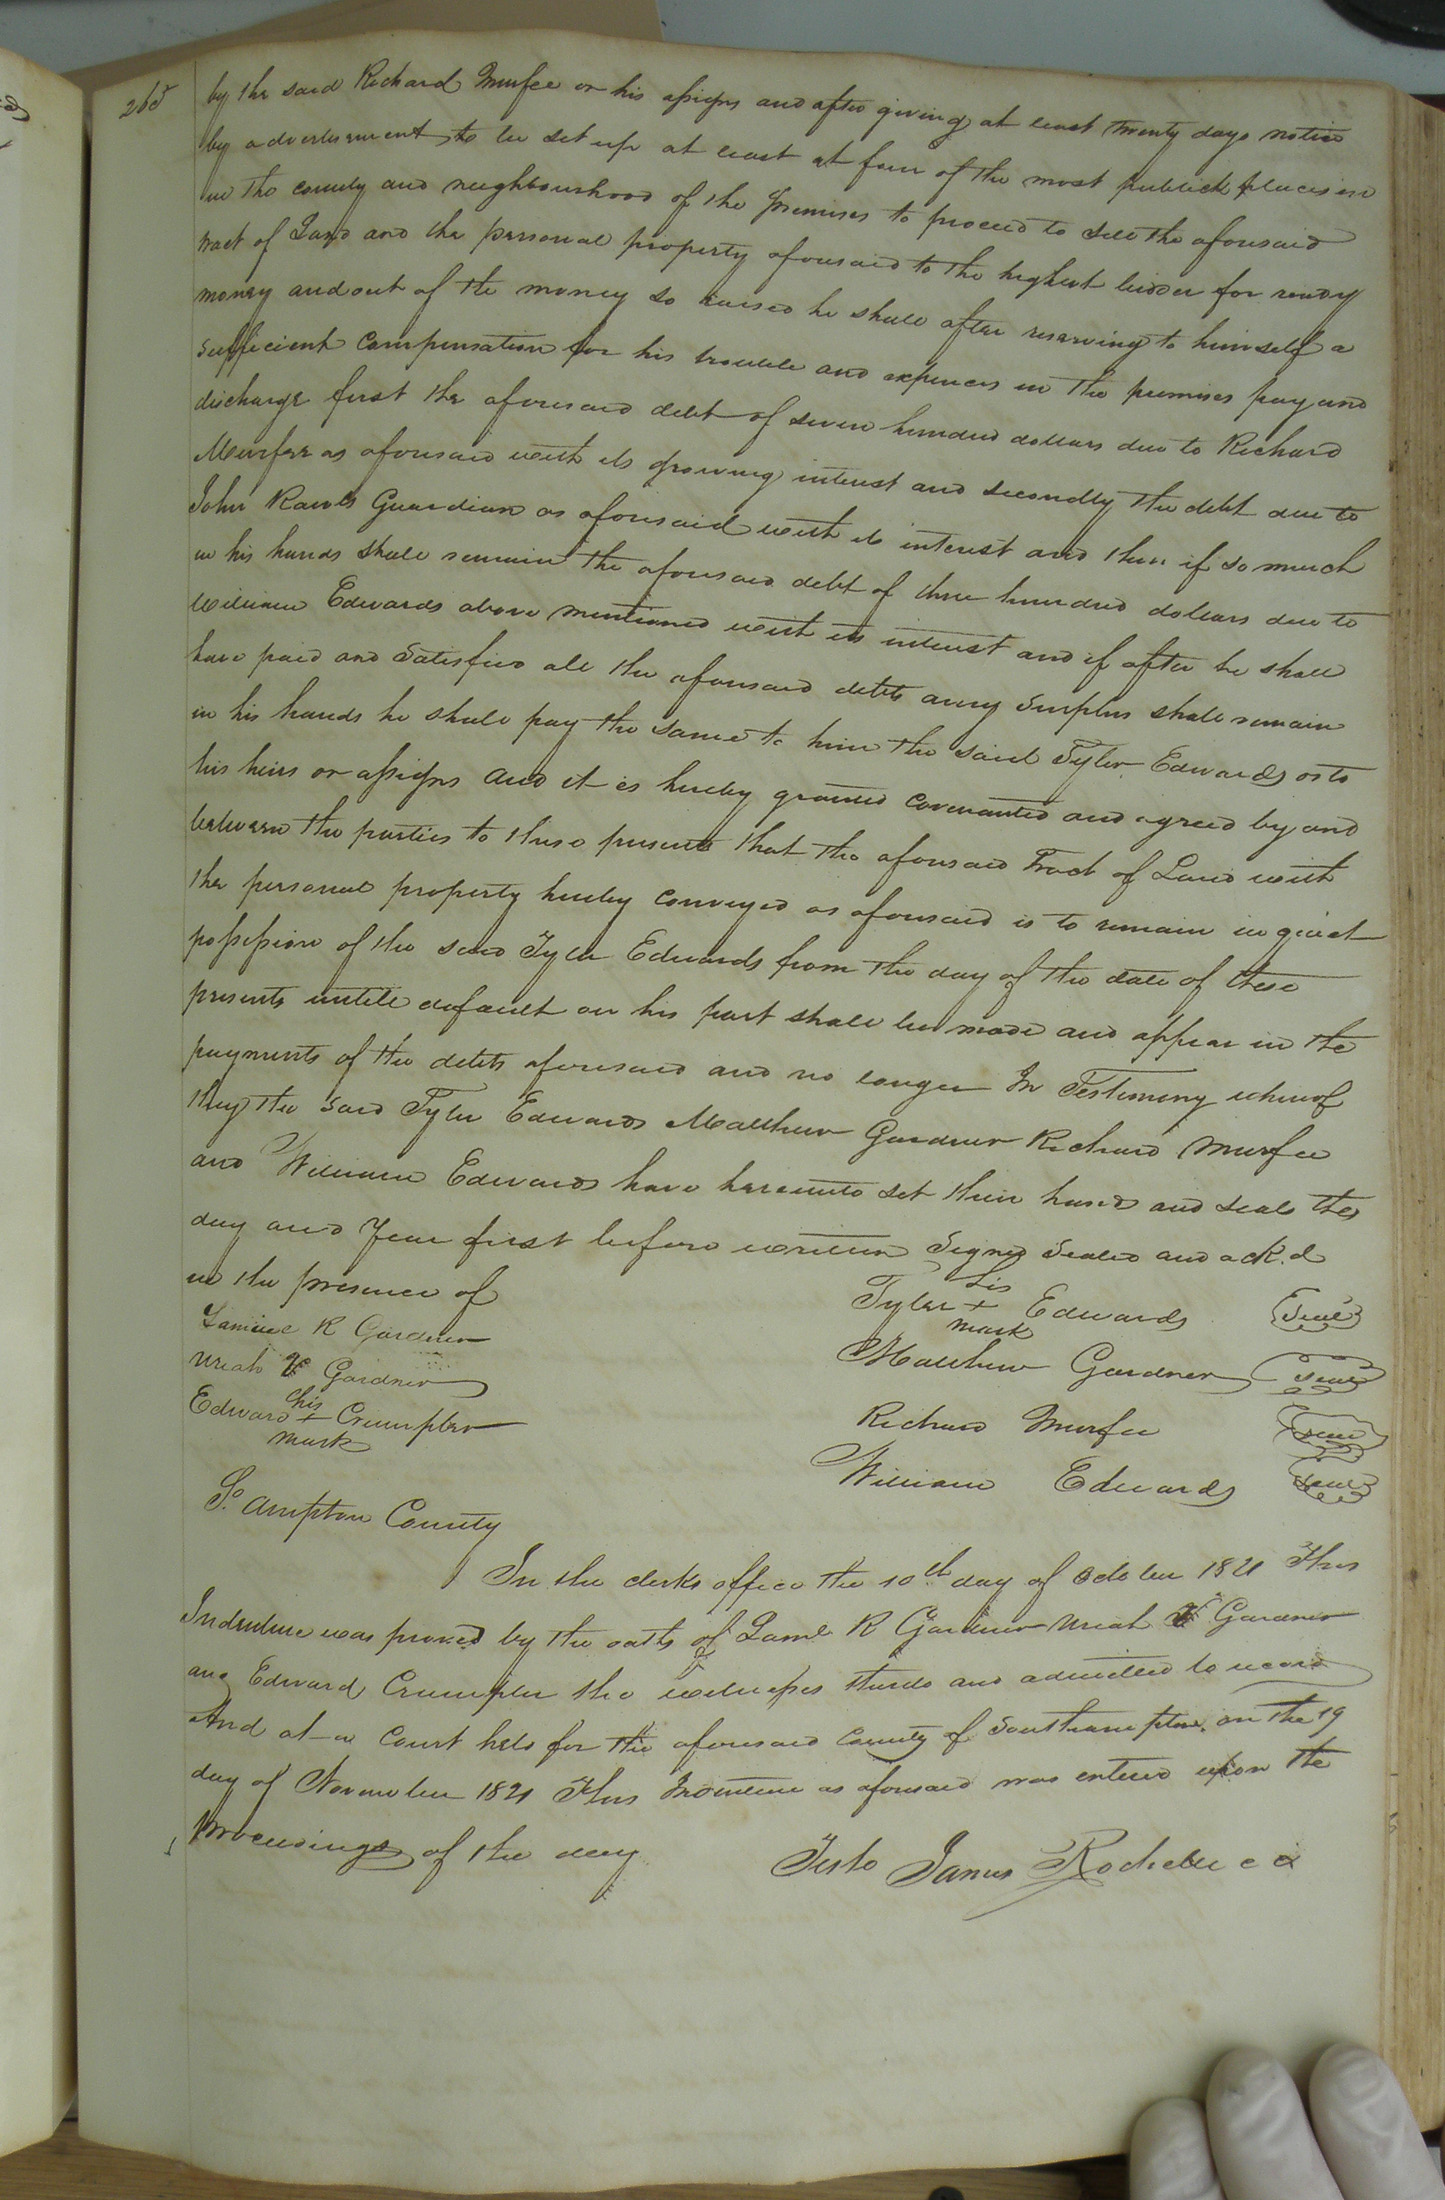 265
by the said Richard Murfee or his assigns and after giving at least twenty days notice
by advertisement to be set up at least at four of the most publick places in
in the county and neighbourhood of the premises to proceed to sell the aforesaid
tract of Land and the personal property aforesaid to the highest bidder for ready
money and out of the money so raised he shall after reserving to himself a
sufficient compensation for his trouble and expences in the premises pay and
discharge first the aforesaid debt of seven hundred dollars due to Richard
Murfee as aforesaid with its growing interest and secondly the debt due to
John Rawls Guardian as aforesaid with its interest and then if so much
in his hands shall remain the aforesaid debt of three hundred dollars due to
William Edwards above mentioned with its interest and if after he shall
have paid and satisfied all the aforesaid debts any surplus shall remain
in his hands he shall pay the same to him the said Tyler Edwards or to
his heirs or assigns and it is hereby granted covenanted and agreed by and
between the parties to these presents that the aforesaid Tract of Land with
the personal property hereby conveyed as aforesaid is to remain in quiet
possession of the said Tyler Edwards from the day of the date of these
presents untill default on his part shall be made and appear in the
payments of the debts aforesaid and no longer In Testimony whereof
they the said Tyler Edwards Matthew Gardner Richard Murfee
and William Edwards have hereunto set their hands and seals the
day and Year first before written Signed Sealed and ackd
in the presence of
Samuel R Gardner
Uriah Gardner
Edward his + mark Crumpler
Tyler his + mark Edwards Seal
Matthew Gardner Seal
Richard Murfee Seal
William Edwards Seal
So. Ampton County
In the clerks office the 10th day of October 1821 This
Indenture was proved by the oaths of Saml R Gardner Uriah Gardner
and Edward Crumpler the witnesses thereto and admitted to record
And at a Court held for the aforesaid County of Southampton on the 19
day of November 1821 This Indenture as aforesaid was entered upon the
proceedings of the day
Teste James Rochelle cc